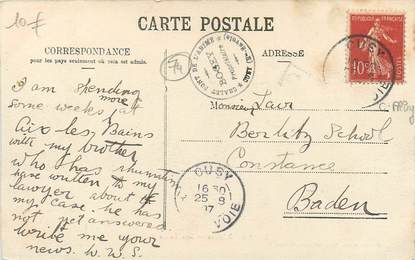 10 F
CARTE POSTALE
CORRESPONDANCE
pour les pays seulement où cela est admis.
ADRESSE
CHALET PONT DE L'ABIME
BOGEY
Propriétaire
74
RÉPUBLIQUE FRANÇAISE
10
POSTES
CUSY
I am spending
some more weeks at
Aix les Bains
with my brother
who has rheumatism
have written to my
lawyer about
my case. he has
not yet answered
write me your
news. W. S.
Monsieur
Berlitz School
Constance
Baden
CUSY
16 30
25 9
07